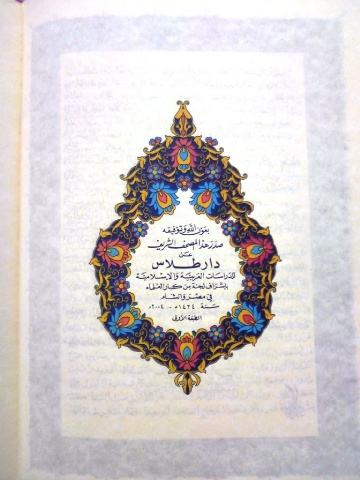 بعون الله وتوفيقه
صدر هذا المصحف الشريف
عن
دار طلاس
للدراسات العربية والإسلامية
بإشراف لجنة من كبار العلماء
في مصر والشام
سنة ١٤٢٤هـ - ٢٠٠٤م
الطبعة الأولى